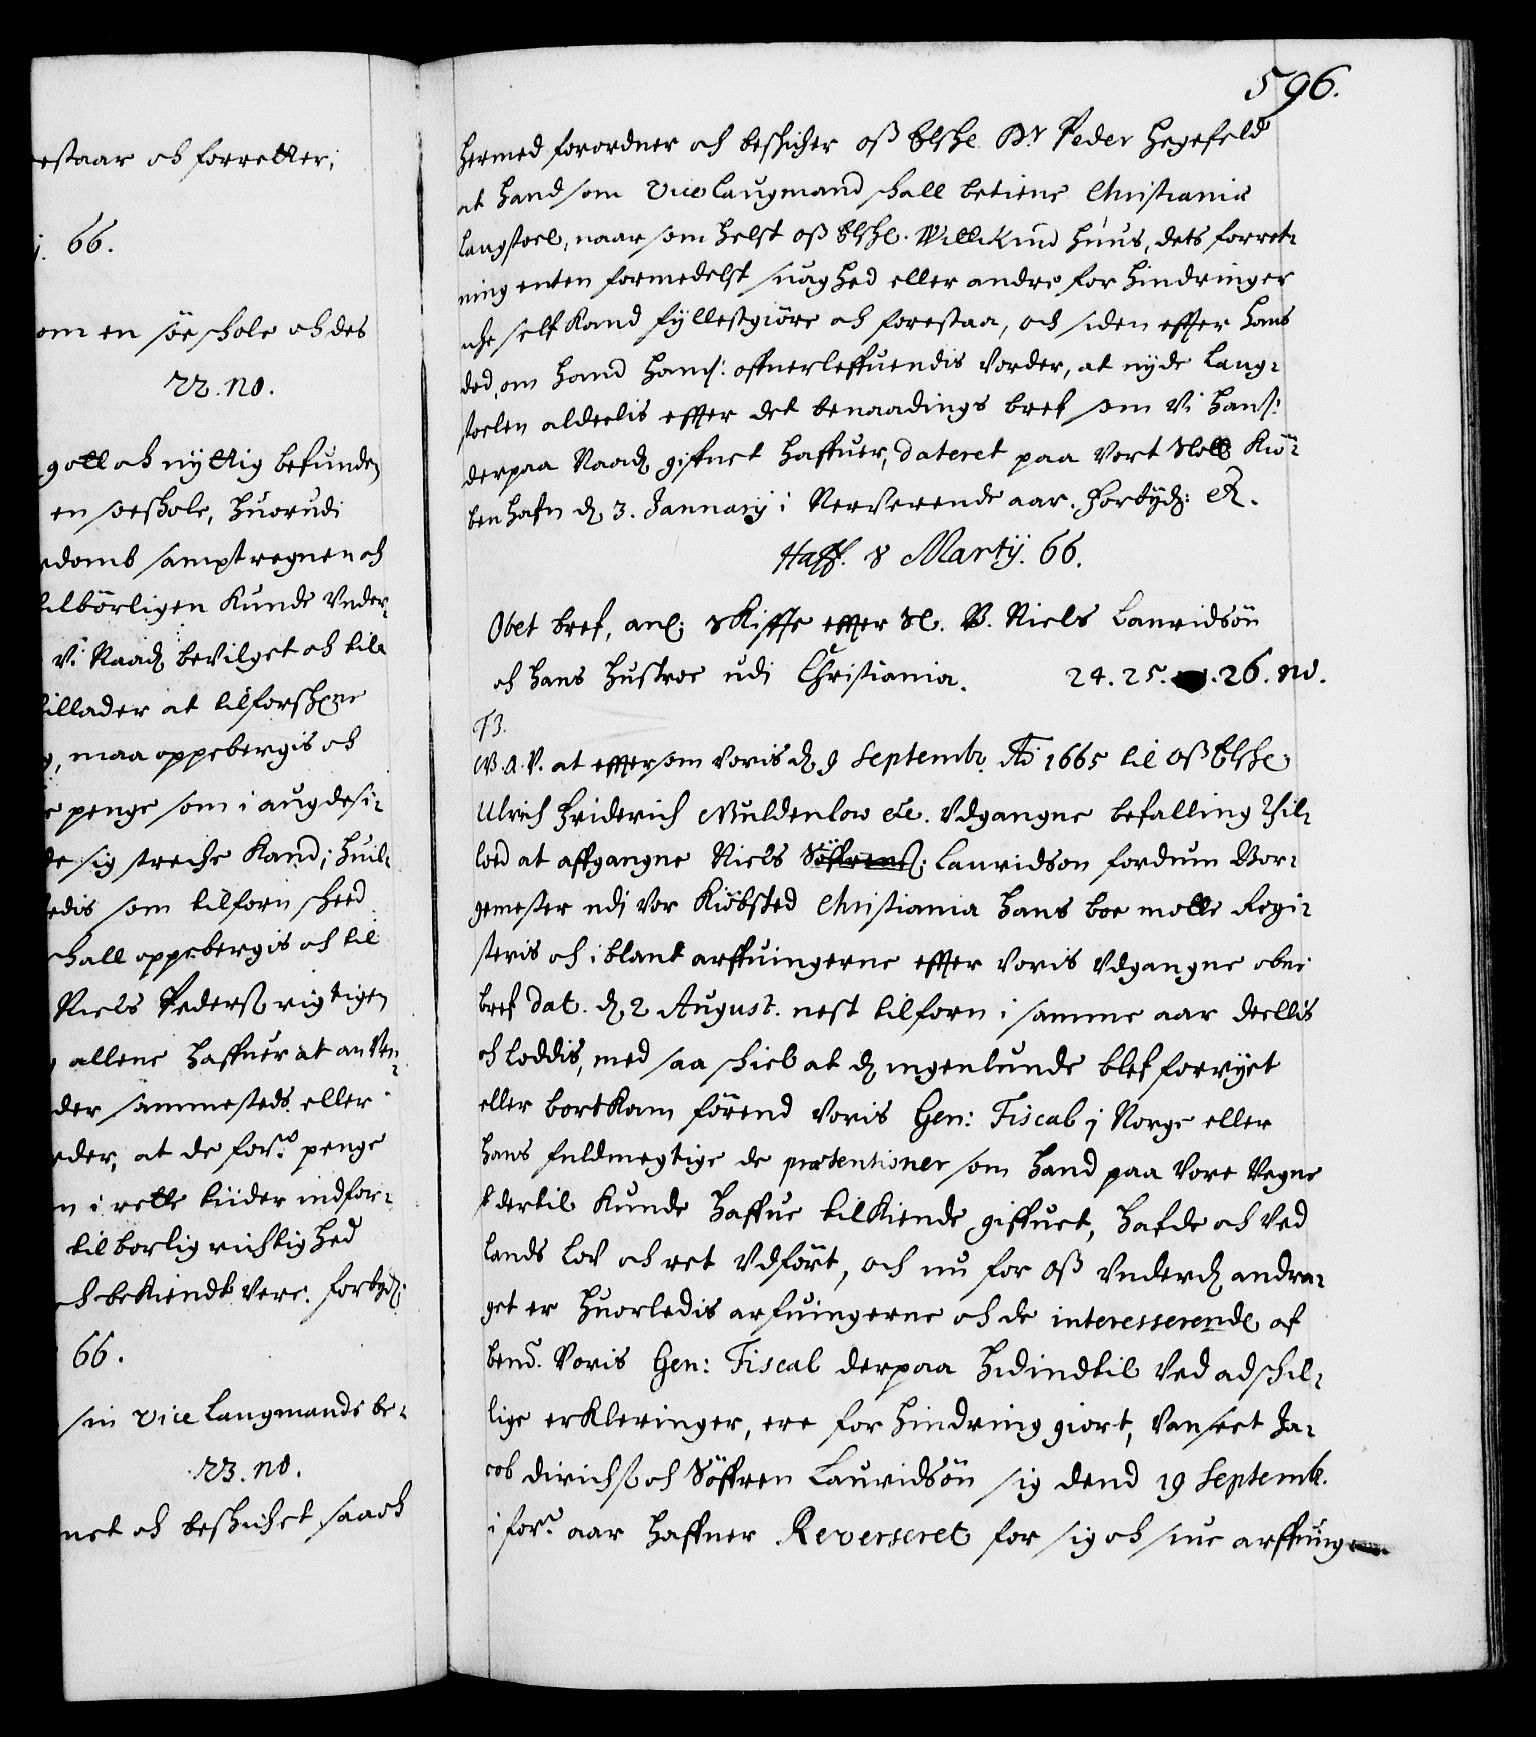 estaar och forretter;
j. 66.
om en söe schole och des
22. no.
gott och nyttig befunden
en söeschole, huorudi
edomb sampt regnen och
tilbörligen kunde under-
Vi Naad. bevilget och til-
tillader at tilforschrne
, maa oppebergis och
e penge som i augdesi-
de sig streche kand; huil-
edis som tilforn scheed
schall oppebergis och til
Niels Pederß. rigtigen
allene haffuer at anven-
der sammesteds eller
eder, at de forne penge
n i rette tiider indfor-
tilborlig richtighed
ch bekiendt vere. forbyd:
66.
sin vice Laugmands be-
23. no.
net och beschichet saa och
596.
hermed forordner och beschicher oß Elshe. Dr Peder Hegefeld
at hand som Vice Laugmand schall betiene Christianiæ
laugstoel, naar som helst oß Elshe. Willikind Huus, dets forret-
ning enten formedelst suaghed eller andre forhindringer
iche self kand fyllestgiöre och forestaa, och siden effter hans
död, om hand hannem offuerleffuendis vorder, at nyde laug-
stoelen aldeelis effter det benaadings bref som Vi hannem
derpaa Naad. giffuet haffuer, dateret paa Vort Slott Kiö-
benhafn d. 3. January i Nerverende aar. Forbyd: Etc.
Haff. 8 Martij. 66.
Obet bref, anl: Skiffte effter Sl. B. Niels Lauridsön
och hans hustroe udi Christiania. 24. 25. 26. no.
F3.
W. A. V. at efftersom voris d. 9 Septembr. Ao 1665 til oß Elshe.
Ulrich Friderich Guldenlow etc. Udgangne befalling til-
lod at affgangne Niels Söffrenß: Lauridson fordum Bor-
gemester udi Vor Kiöbsted Christiania hans boe motte Regi-
steris och iblant arffuingerne effter voris Udgangne obne
bref dat. d. 2 August. nest tilforn i samme aar deellis
och loddis, med saa schiel at d. ingenlunde blef forryct
eller bortkam förend voris Gen: Fiscal j Norge eller
hans fuldmegtige de prætentioner som hand paa Vore Vegne
dertil kunde haffue tilkiende giffuet, hafde och ved
lands lov och ret udfört, och nu for oß underd. andra-
get er huorledis arfuingerne och de interesserende af
bemte. Voris Gen: Fiscal derpaa hidindtil ved adschil-
lige erkleringer, ere forhindring giort, Vanseet Ja-
cob Dirichß och Söffren Lauridsön sig dend 19 Septemb.
i forne aar haffuer Reverseret for sig och sine arffuing